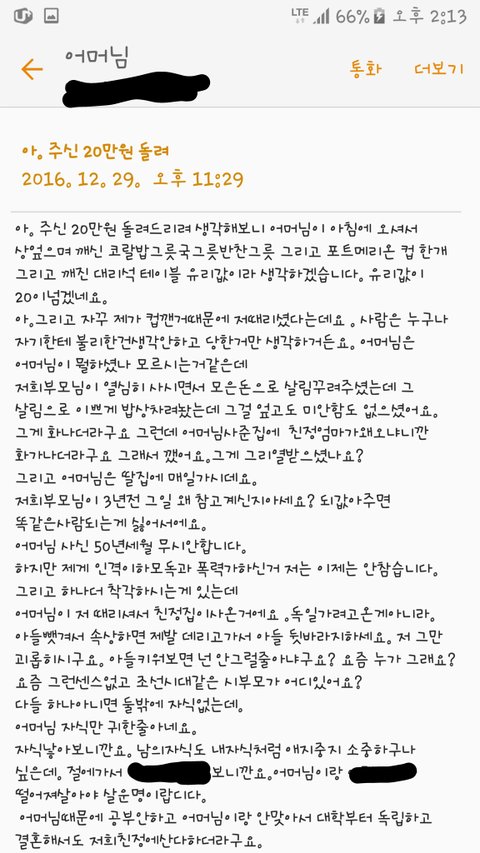 LTE 66% 오후 2:13
어머님
통화 더보기
아. 주신 20만원 돌려
2016. 12. 29. 오후 11:29
아. 주신 20만원 돌려드리려 생각해보니 어머님이 아침에 오셔서
상엎으며 깨신 코랄밥그릇국그릇반찬그릇 그리고 포트메리온 컵 한개
그리고 깨진 대리석 테이블 유리값이라 생각하겠습니다. 유리값이
20이넘겠네요.
아.그리고 자꾸 제가 컵깬거때문에 저때리셨다는데요 . 사람은 누구나
자기한테 불리한건생각안하고 당한거만 생각하거든요. 어머님은
어머님이 뭘하셨나 모르시는거같은데
저희부모님이 열심히 사시면서 모은돈으로 살림꾸려주셨는데 그
살림으로 이쁘게 밥상차려놨는데 그걸 엎고도 미안함도 없으셨어요.
그게 화나더라구요 그런데 어머님사준집에 친정엄마가왜오냐니깐
화가나더라구요 그래서 깼어요.그게 그리열받으셨나요?
그리고 어머님은 딸집에 매일가시데요.
저희부모님이 3년전 그일 왜 참고계신지아세요? 되갚아주면
똑같은사람되는게 싫어서에요.
어머님 사신 50년세월 무시안합니다.
하지만 제게 인격이하모독과 폭력가하신거 저는 이제는 안참습니다.
그리고 하나더 착각하시는게 있는데
어머님이 저 때리셔서 친정집이사온거에요 .독일가려고온게아니라.
아들뺏겨서 속상하면 제발 데리고가서 아들 뒷바라지하세요. 저 그만
괴롭히시구요. 아들키워보면 넌 안그럴줄아냐구요? 요즘 누가 그래요?
요즘 그런센스없고 조선시대같은 시부모가 어디있어요?
다들 하나아니면 둘밖에 자식없는데.
어머님 자식만 귀한줄아네요.
자식낳아보니깐요. 남의자식도 내자식처럼 애지중지 소중하구나
싶은데. 절에가서 보니깐요.어머님이랑
떨어져살아야 살운명이랍디다.
어머님때문에 공부안하고 어머님이랑 안맞아서 대학부터 독립하고
결혼해서도 저희친정에산다하더라구요.